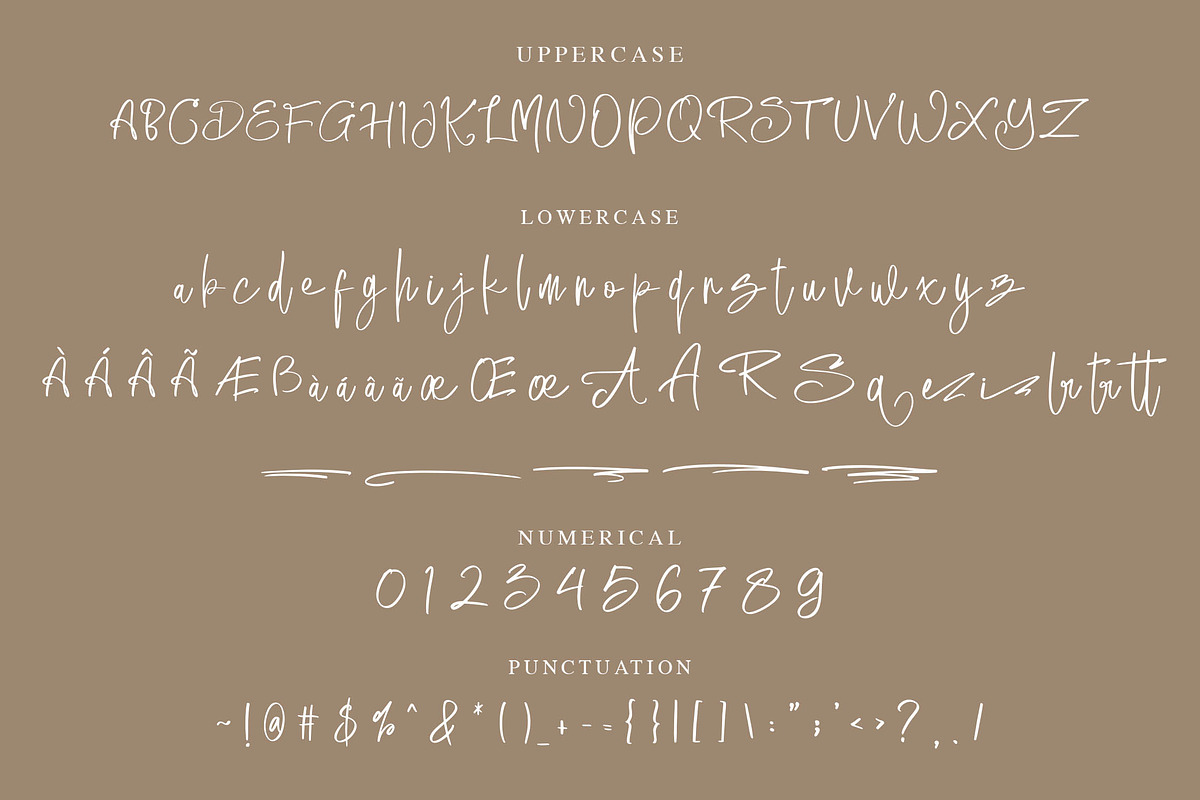 UPPERCASE
ABCDEFGHIJKLMNOPQRSTUVWXYZ
LOWERCASE
abcdefghijklmnopqrstuvwxyz
ÀÁÂÃÆBàáâãæŒœAARSqezizbrtrtt
NUMERICAL
0123456789
PUNCTUATION
~!@#$%^&*()_+-={}|[]\:";'<>?,./